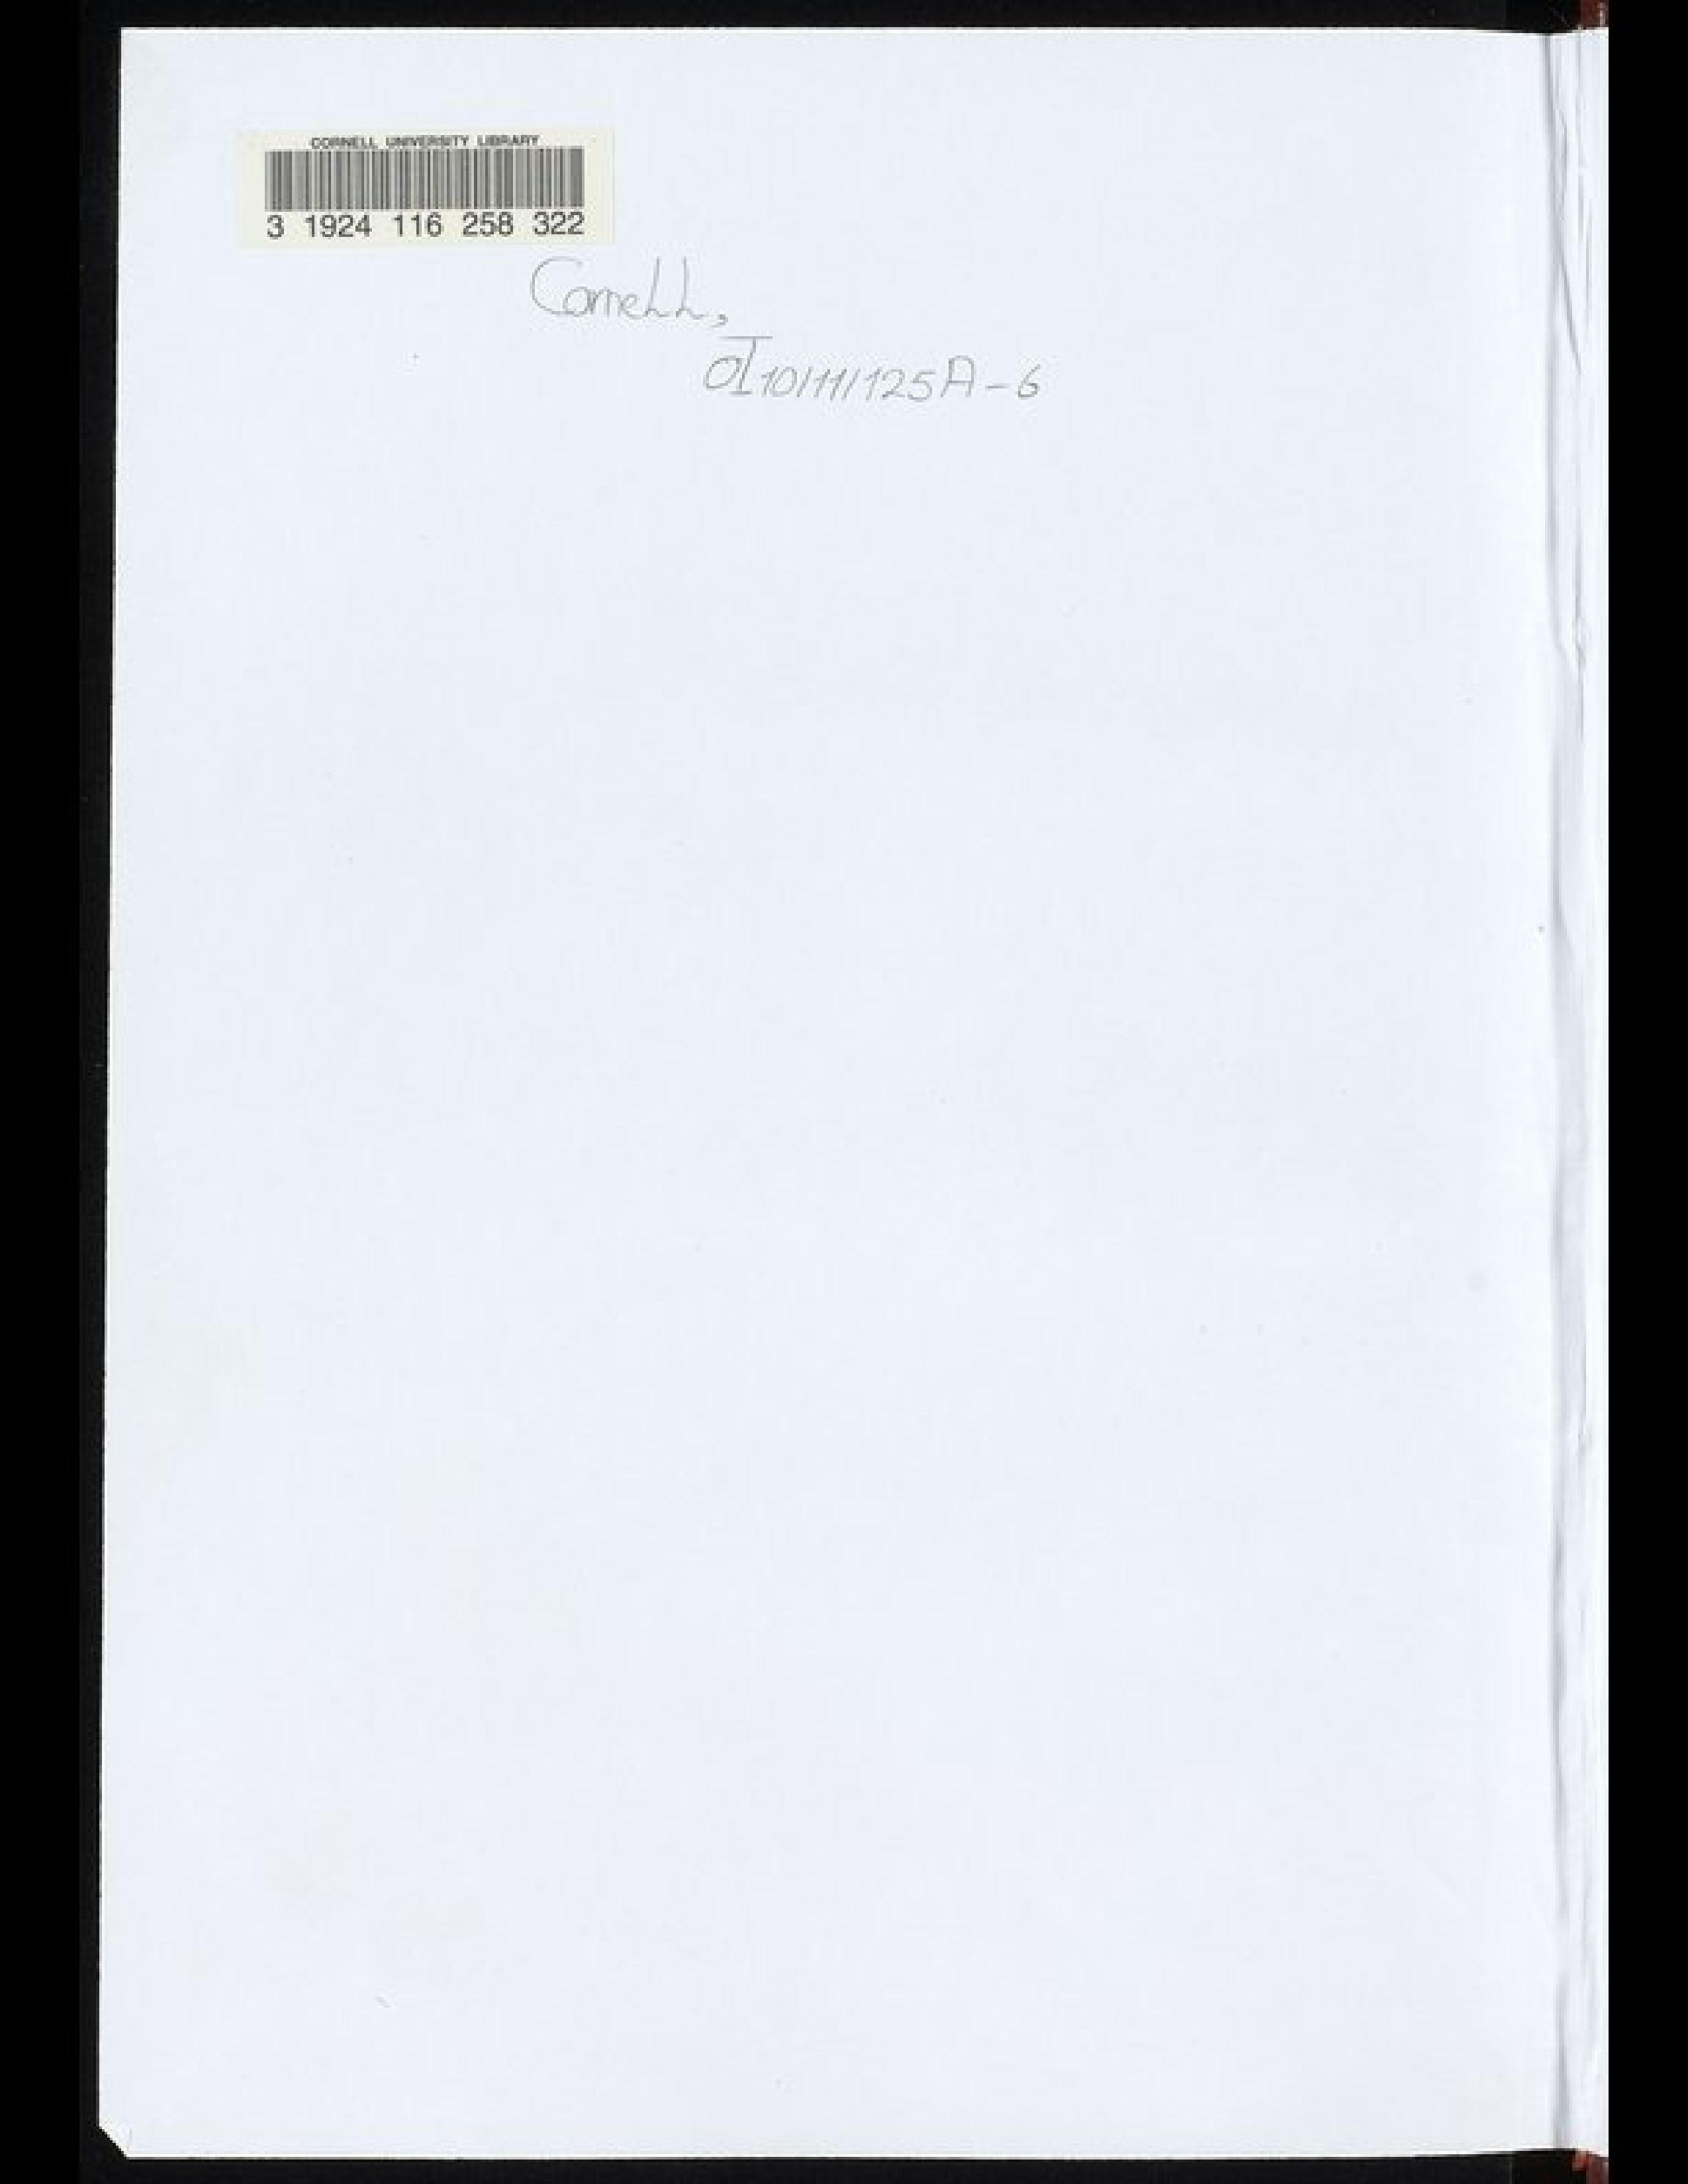 CORNELL UNIVERSITY LIBRARY
3 1924 116 258 322
Cornell,
OI10/11/125A-6